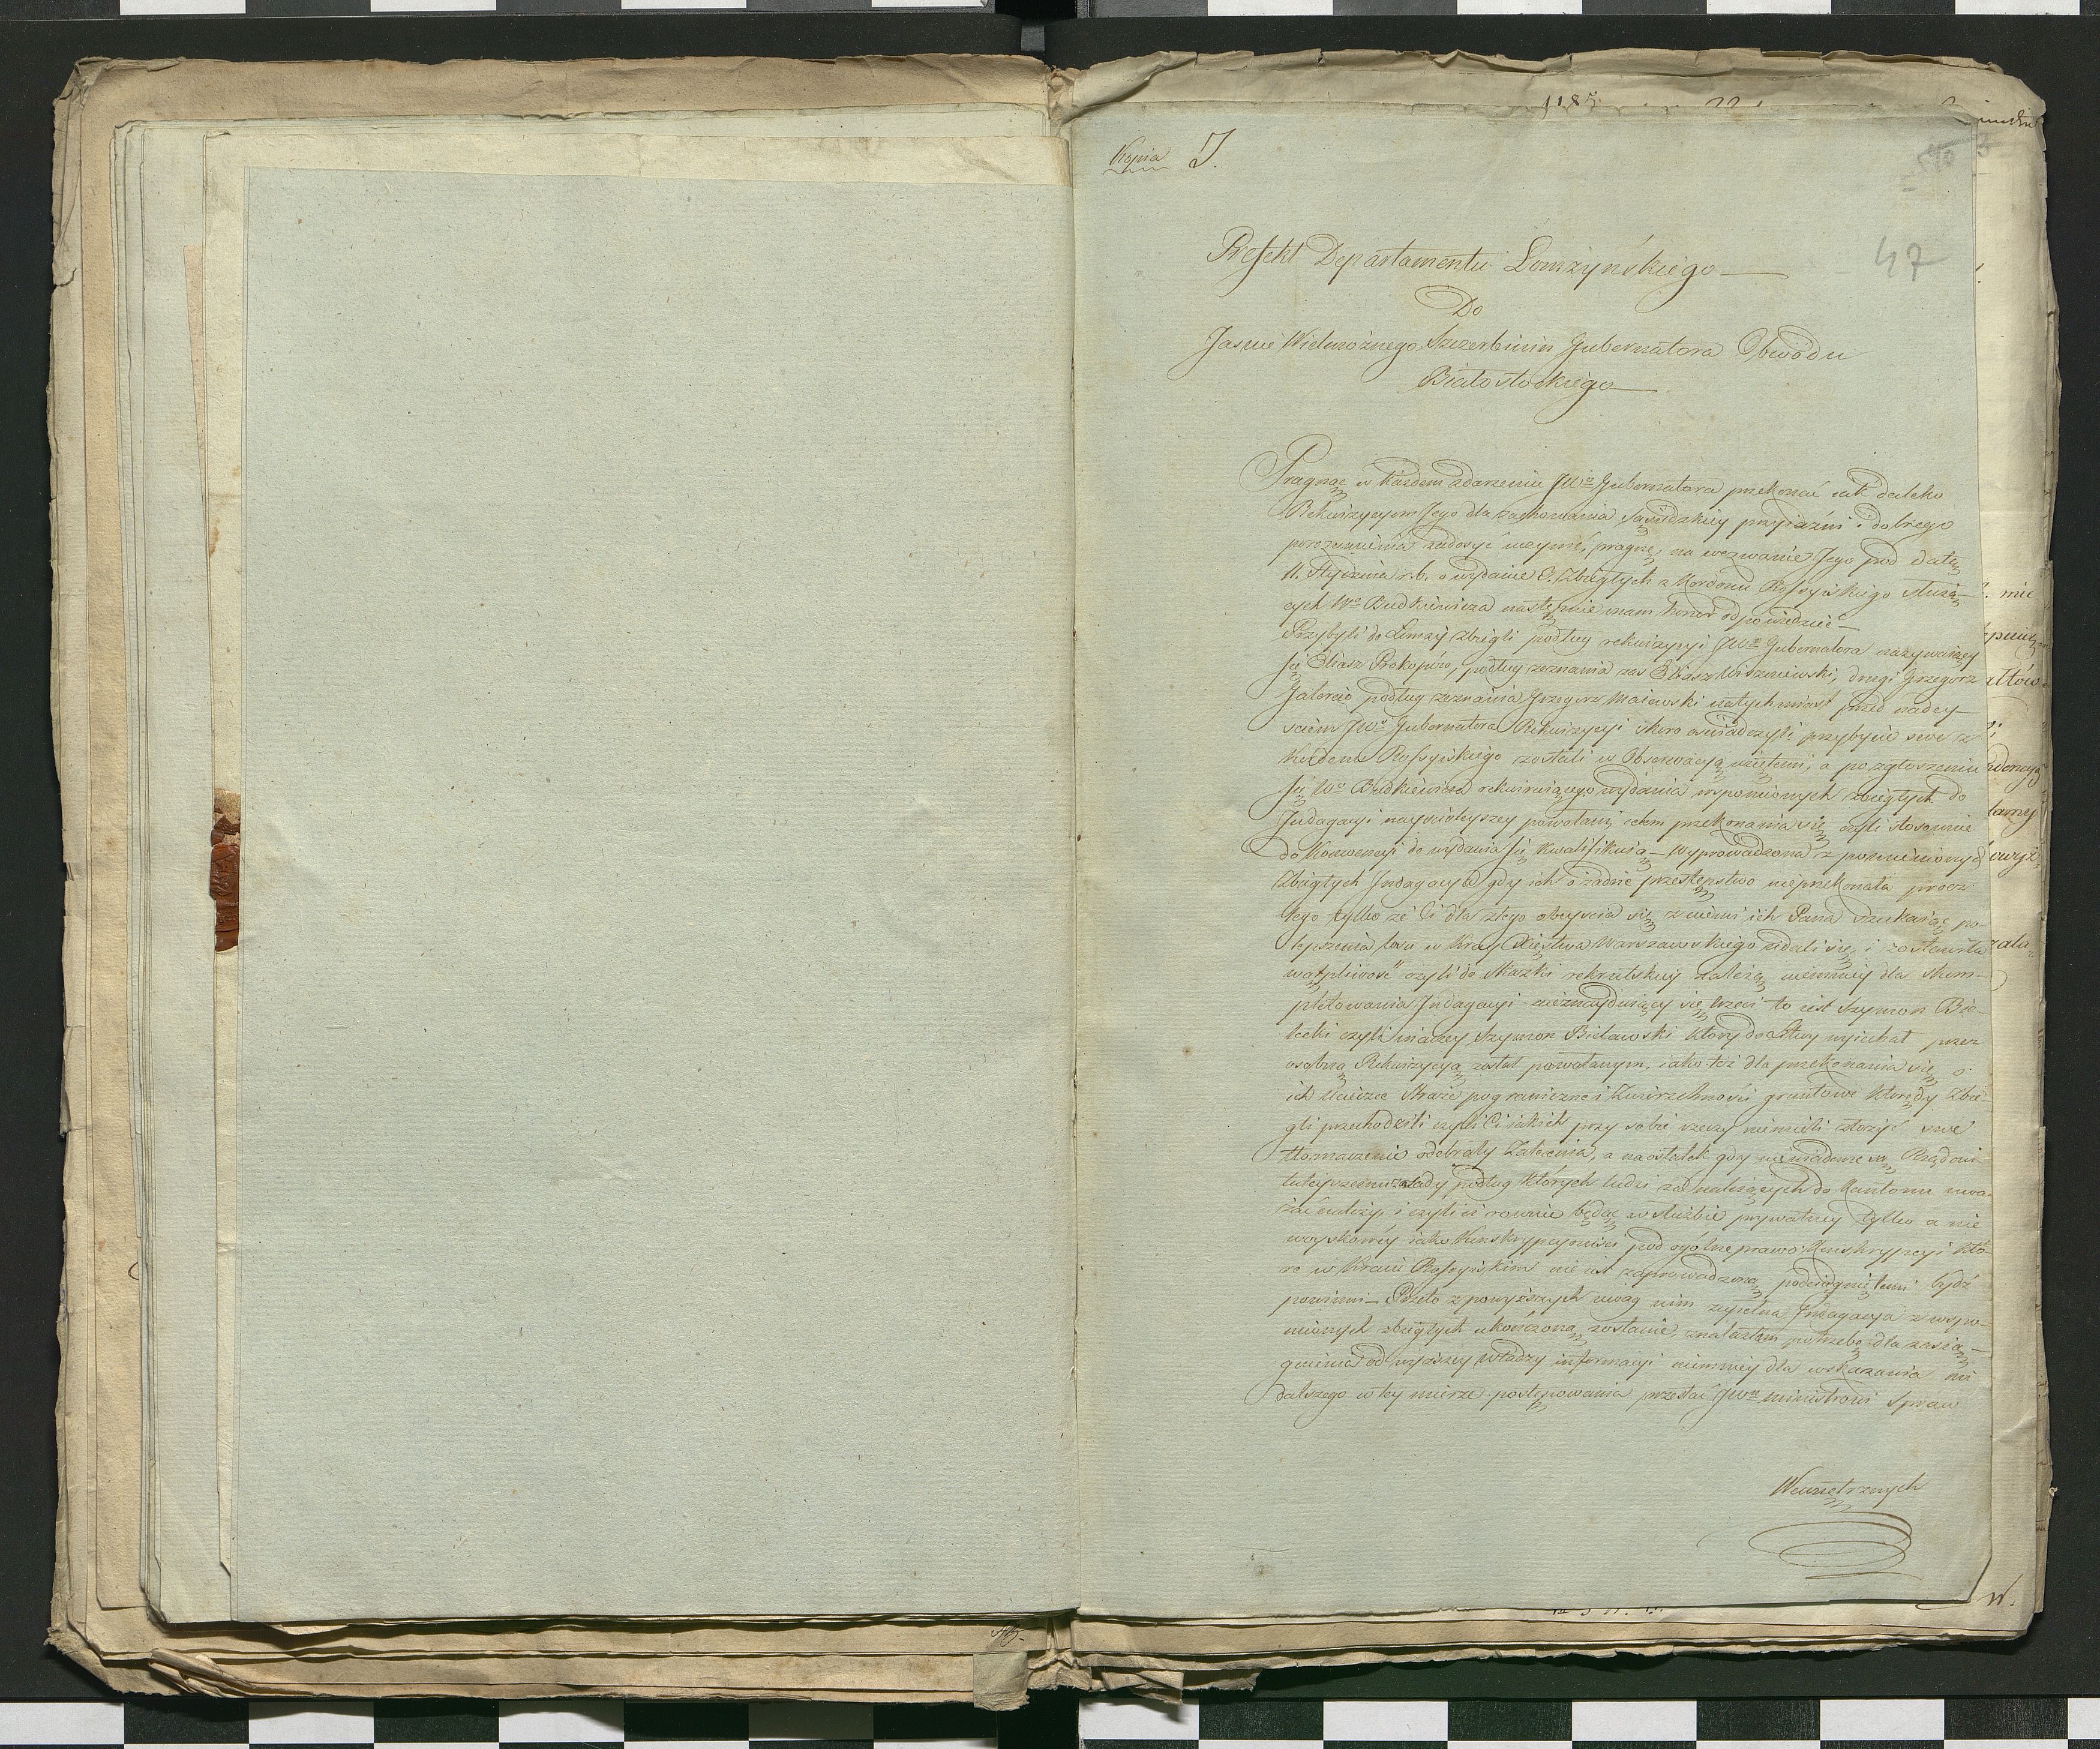 Kopia J.
47
Prefekt Departamentu Łomżyńskiego
Do
Jaśnie Wielmożnego Szczerbinin Gubernatora Obwodu
Białostockiego
Pragnąc w każdem zdarzeniu JWo Gubernatora przekonać iak daleko
Rekwizycyom Jego dla zachowania sąsiedzkiey przyiaźni i dobrego
porozumienia zadosyć uczynić pragnę, na wezwanie Jego pod datą
11. Stycznia r. b. o wydanie 3. Zbiegłych z Kordonu Rossyiskiego służą-
cych Wo Budkiewicza następnie mam honor odpowiedzieć
Przybyli do Łomży zbiegli podług rekwizycyi JWo Gubernatora nazywaiący
się Eliasz Prokopów, podług zeznania zaś Eliasz Wiszniewski, drugi Grzegorz
podług zeznania Grzegorz Maiewski natychmiast przed nadey-
ściem JWo Gubernatora Rekwizycyi skoro oświadczyli przybycie swe z
Kordonu Rossyiskiego zostali w Obserwacyą wziętemi, a po zgłoszeniu
się Wo Budkiewicza rekwiruiącego wydania wspomionych zbiegłych do
Indagacyi nayścisleyszey powołani, celem przekonania się czyli stosownie
do Konwencyi do wydania się kwalifikuią — Wyprowadzona z pomienionych
Zbiegłych Indagacya gdy ich o żadne przestępstwo nieprzekonała procz
tego tylko że Ci dla złego obeyścia się z niemi ich Pana szukaiąc po-
lepszenia losu w Kray Xięstwa Warszawskiego udali się, i zostawiła
wątpliwość czyli do Skazki rekrutskiey należą, niemniey dla skom-
pletowania Indagacyi nieznayduiący się trzeci to iest Szymon Bie-
lecki czyli inaczey Szymon Bielawski który do Litwy wyiechał przez
osobną Rekwizycyą został powołanym, iako też dla przekonania się o
ich ucieczce Straże pograniczne i Zwierzchności gruntowe którędy Zbie-
gli przechodzili czyli Ci iakich przy sobie rzeczy niemieli złożyć swe
tłomaczenie odebrały Zalecenia, a naostatek gdy niewiadome są Rządowi
tuteyszemu zasady podług których ludzi za należących do Kantonu uwa-
żać należy, i czyli ci rownie będąc w służbie prywatney tylko a nie
woyskowey iako Konskrypcyoniści pod ogólne prawo Konskrypcyi któ-
re w Kraiu Rossyiskim nie iest zaprowadzone podciągniętemi bydź
powinni — Przeto z powyższych uwag nim zupełna Indagacya z wspo-
mionych zbiegłych ukończoną zostanie, znalazłem potrzebę dla zasią-
gnienia od wyższey władzy informacyi niemniey dla wskazania mi
dalszego w tey mierze postępowania przesłać JWu Ministrowi Spraw
Wewnętrznych